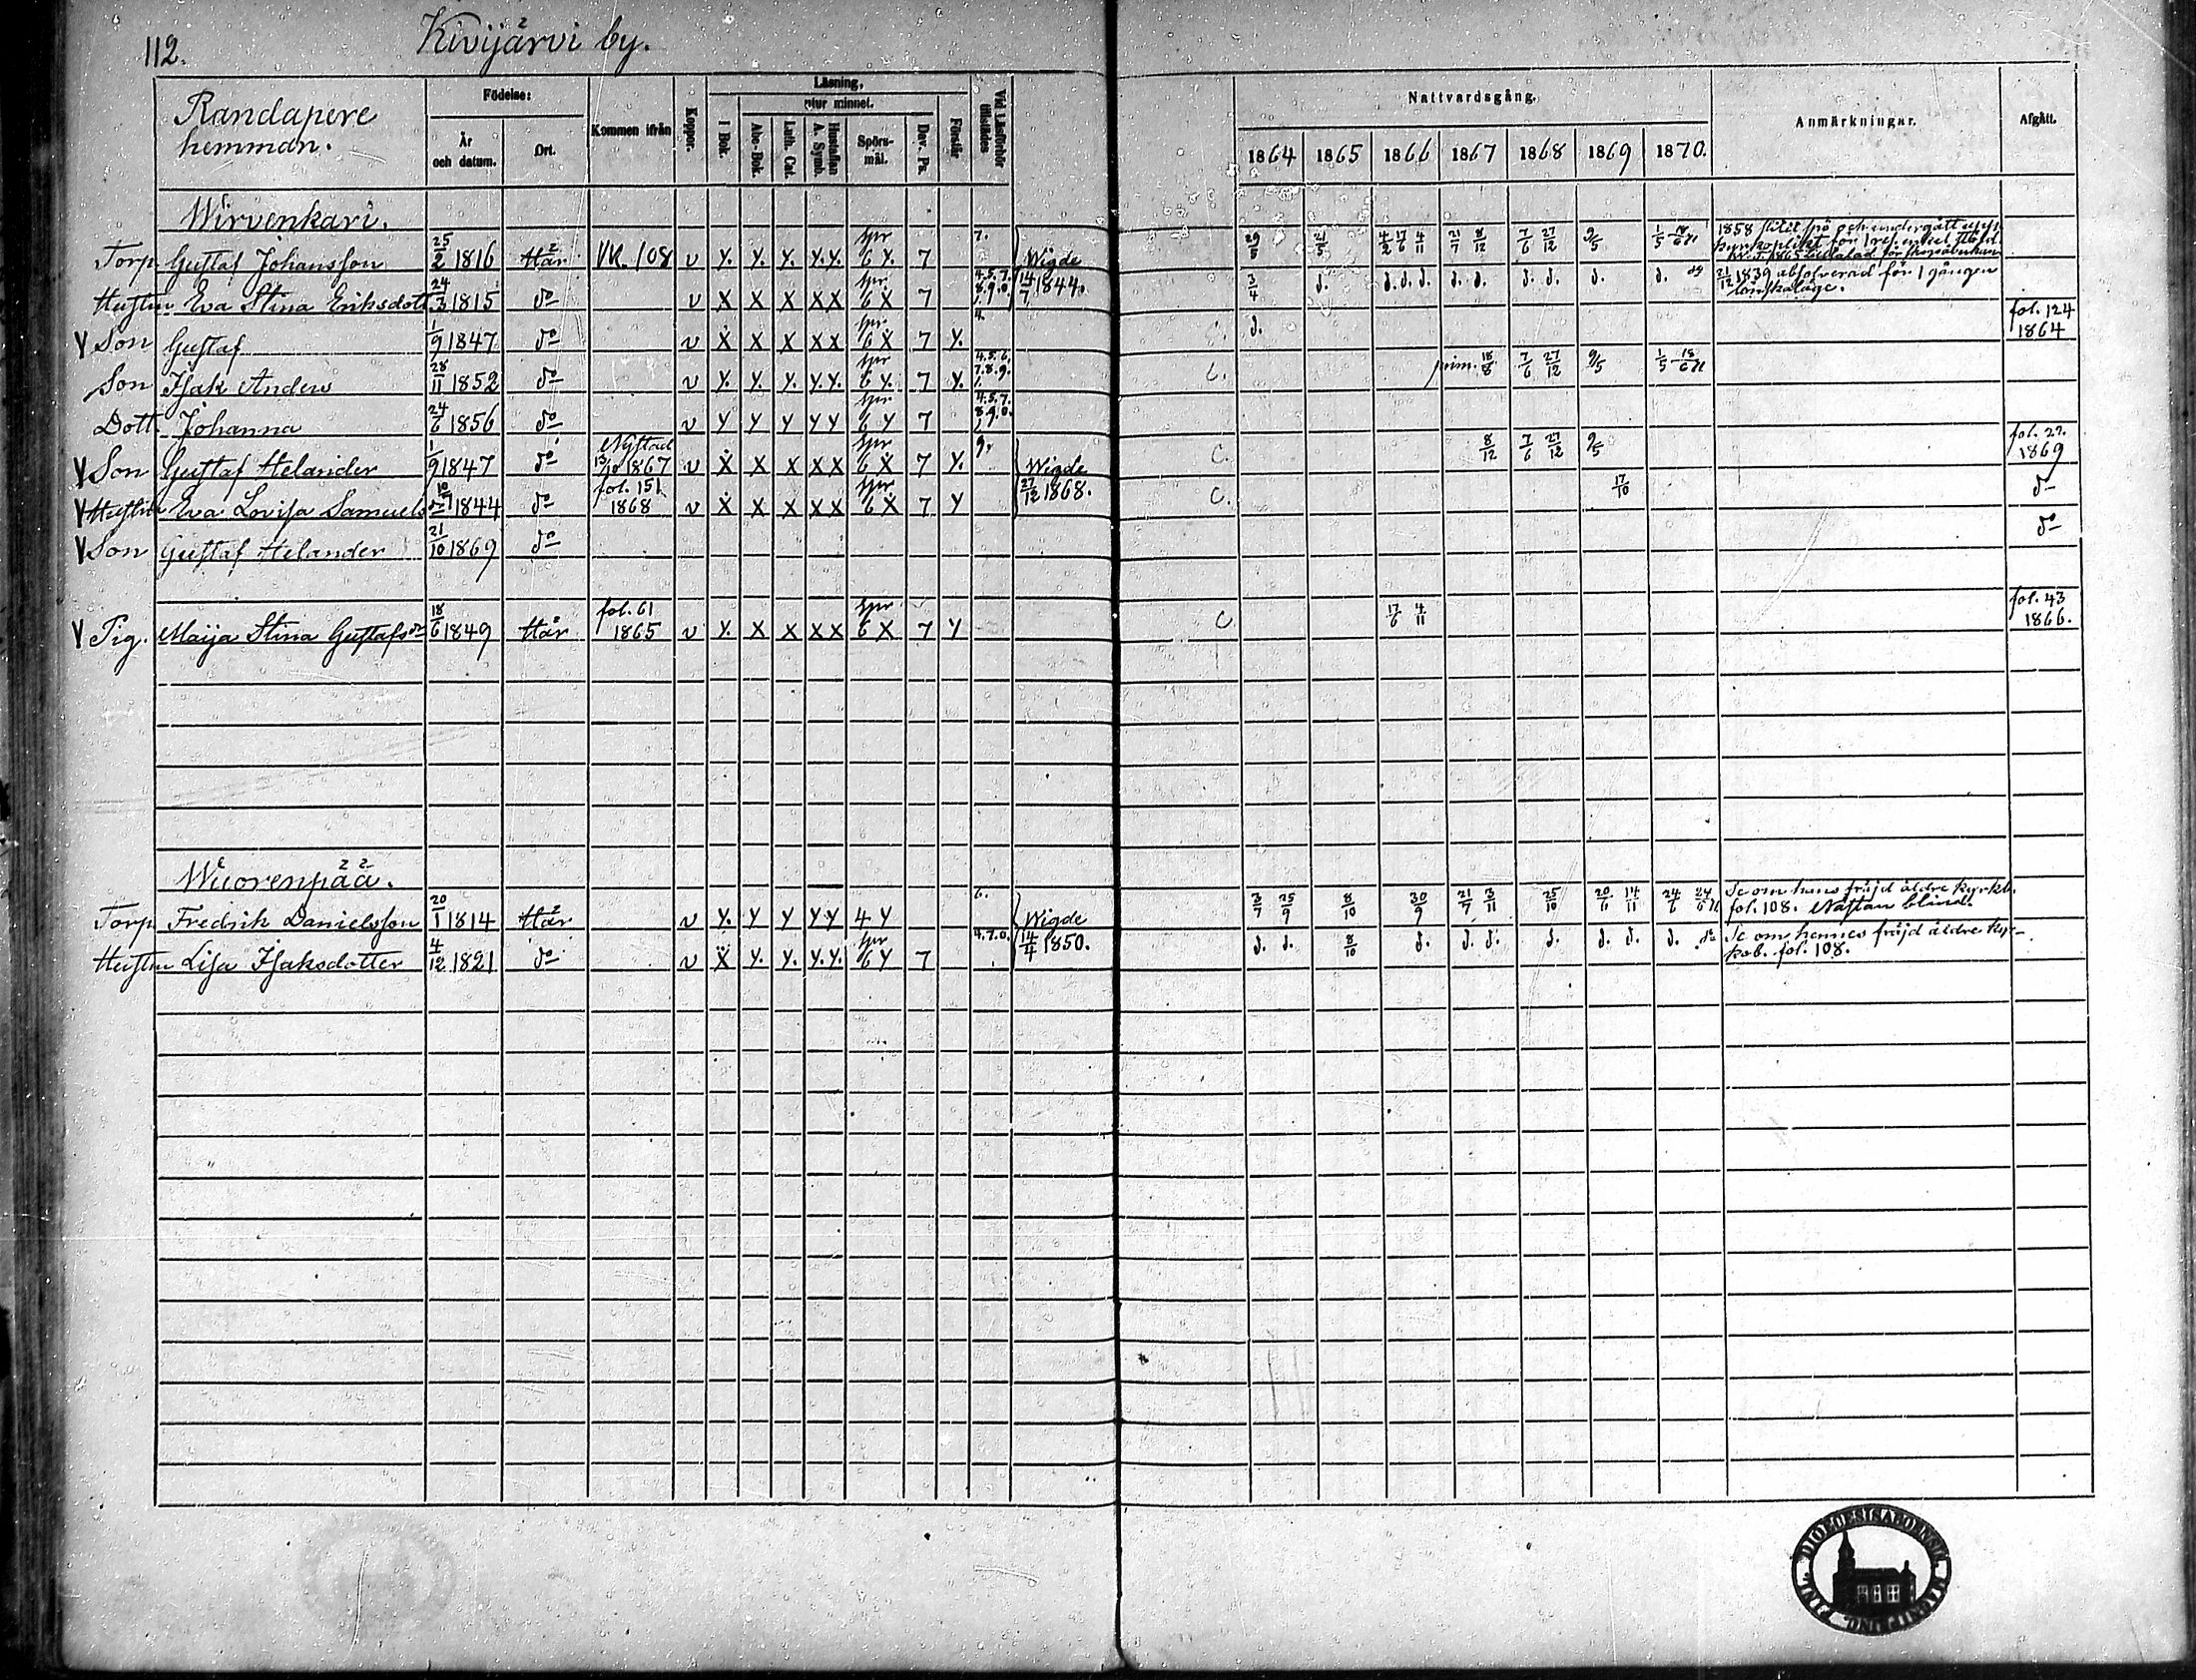 112.
Kivijärvi by.
Randapere hemman.
Födelse:
År och datum.
Ort.
Kommen ifrån
Koppor.
Läsning,
I Bok.
utur minnet.
Abc-Bok.
Luth. Cat.
Hustaflan A. Symb.
Spörs-mål.
Dav. Ps.
Förstår
Vid Läsförhör tillstädes
Nattvardsgång.
1864 1865 1866 1867 1868 1869 1870.
Anmärkningar.
Afgått.
Wirvenkari.
Torp. Gustaf Johansson 25/2 1816 Här VK. 108 v y. y. y. y.y. spr 6 y. 7 7. Wigde 29/5 21/5 4/2 17/6 4/11 21/7 8/12 7/6 27/12 9/5 1/5 1858
Hustrun Eva Stina Eriksdott. 24/3 1815 do v X X X XX spr. 6 X 7 4.5.7. 8.9.0. 14/7 1844. 3/4 d. d. d. d. d. d. d. d. d. d. 21/12 1839 absolverad för 1 gången lönskaläge.
V Son Gustaf 1/9 1847 do v X X X XX spr. 6 X 7 y. 4. d. fol. 124 1864
Son Isak Anders 28/11 1852 do v y. y. y. y.y. spr 6 y. 7 y. 4.5.6. 7.8.9. prim. 18/8 7/6 27/12 9/5 1/5
Dott. Johanna 24/6 1856 do v y y y yy spr 6 y 7 4.5.7. 8.9.0.
V Son Gustaf Helander 1/9 1847 do Nystad 13/10 1867 v X X X XX spr 6 X 7 y. 9. Wigde C. 8/12 7/6 27/12 9/5 fol. 22. 1869
V Hustrun Eva Lovisa Samuels 1844 do fol. 151 1868 v X X X XX spr 6 X 7 y 27/12 1868. C. 17/10 do
V Son Gustaf Helander 21/10 1869 do do
V Pig. Maija Stina Gustafsd 18/6 1849 Här fol. 61 1865 v y. X X XX spr 6 X 7 y C 17/6 4/11 fol. 43 1866.
Wuorenpää.
Torp. Fredrik Danielsson 20/1 1814 Här v y. y y yy 4 y 6. Wigde 3/7 25/9 8/10 30/9 21/7 3/11 25/10 20/6 14/11 24/6 Se om hans fräjd äldre kyrkb. fol. 108. Nästan blind.
Hustrun Lisa Isaksdotter 4/12 1821 do v X y. y. y.y. spr 6 y 7 4.7.0. 14/4 1850. d. d. 8/10 d. d. d. d. d. d. d. do Se om hennes fräjd äldre kyr-kob. fol. 108.